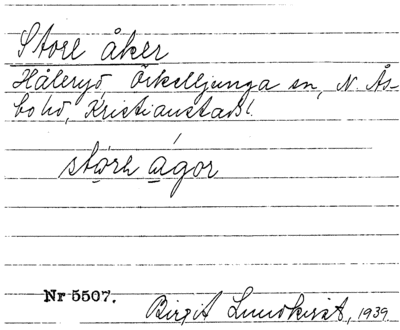 Store åker
Håleryd, Örkelljunga sn, N. Ås-
bo hd, Kristianstads l.
störe ågor
Nr 5507.
Birgit Lundkvist, 1939